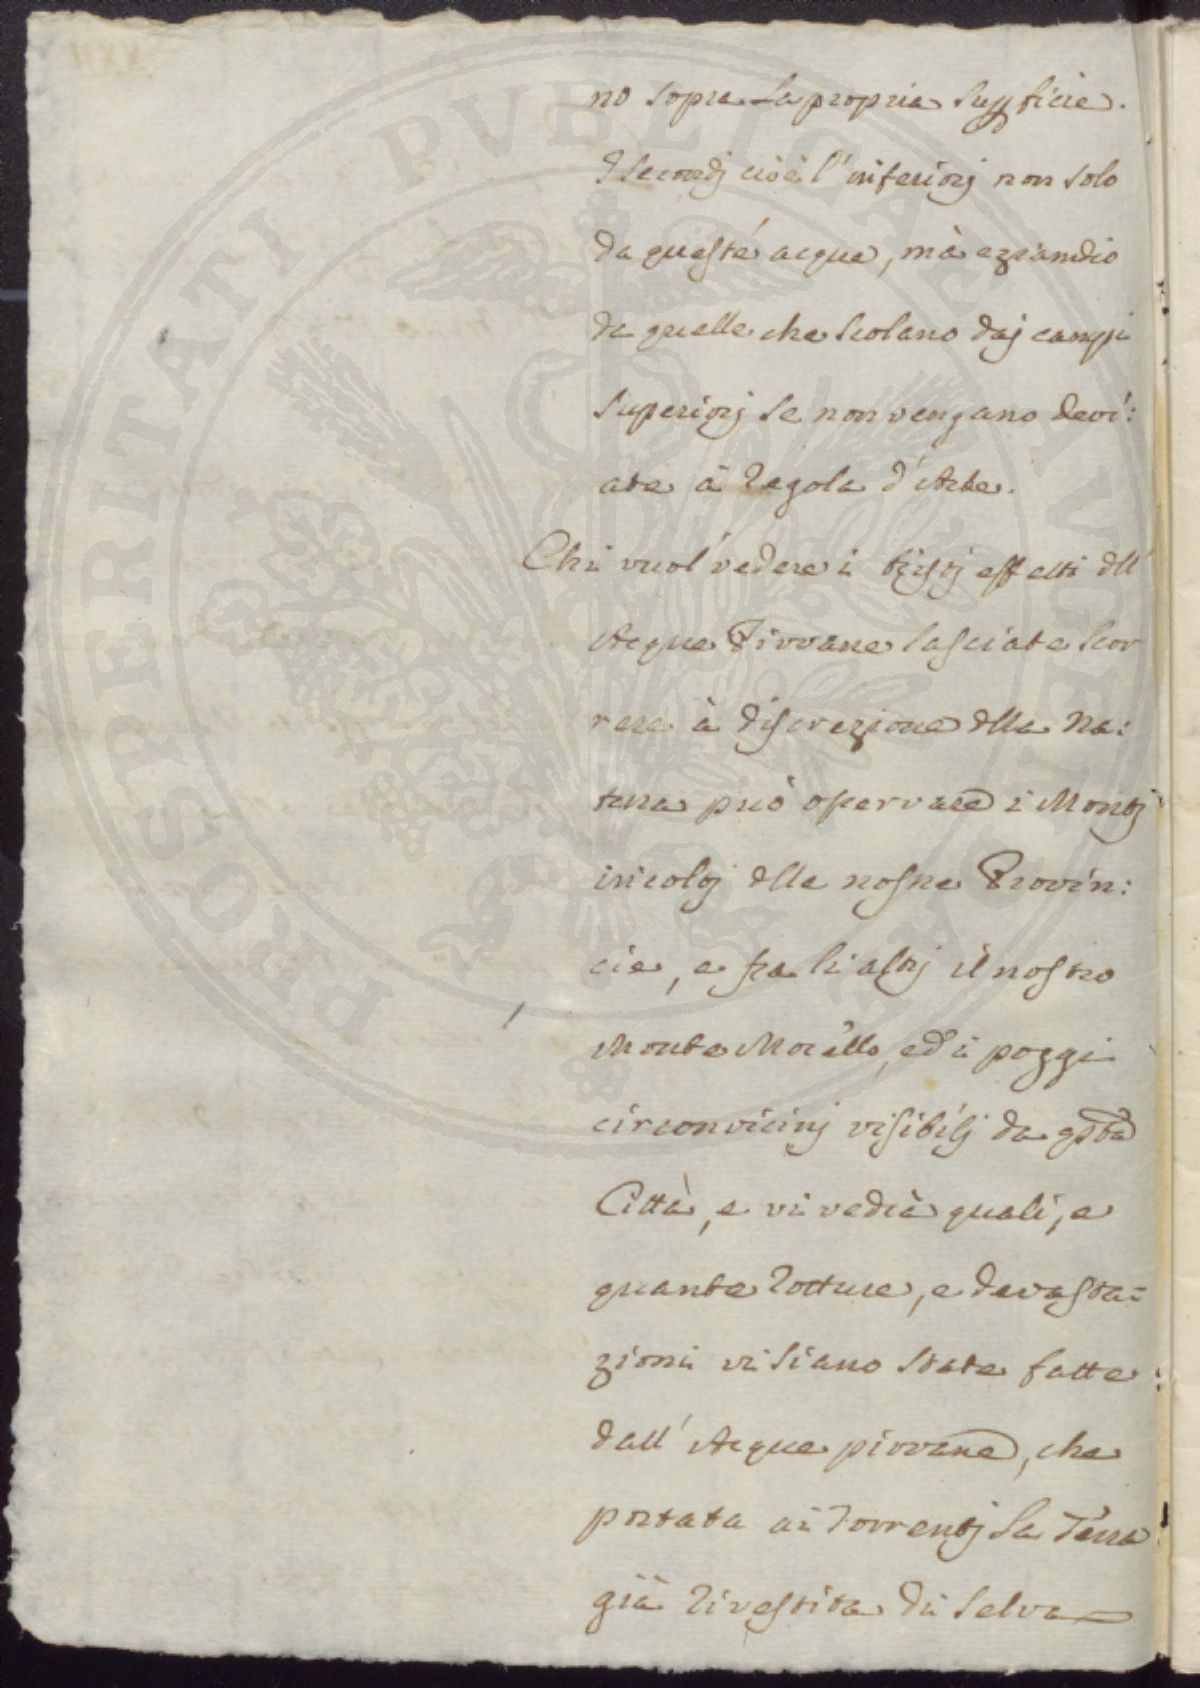 no sopra la propria Supficie.
I Secondj cioè l'inferiorj non solo
da queste acque, mà eziandio
da quelle che Scolano daj campi
Superiorj se non vengano devi:
ate à Regola d'Arte.
Chi vuol vedere i tristj effetti dll'
Acque Piovane lasciate Scor
rere à discrezione dlla Na:
tura può osservare i Montj
incoltj dlle nostre Provin:
cie, e fra li altrj il nostro
Monte Morello, ed i poggi
circonvicinj visibilj da qsta
Città, e vi vedrà quali, e
quante Rotture, e devasta:
zioni vi siano state fatte
dall'Acque piovane, che
portata ai Torrentj la Terra
già Rivestita di Selva
PROSPERITATI PVBLICAE AVGENDAE